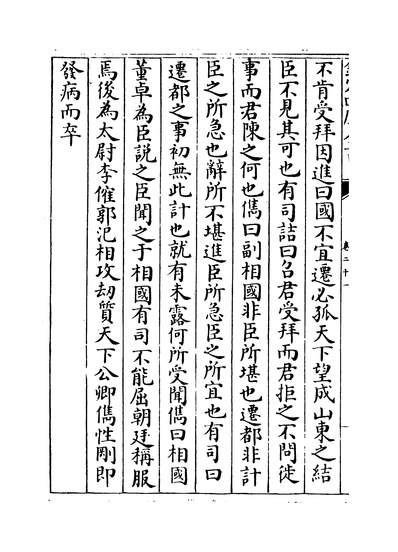 不肯受拜因進曰國不宜遷必孤天下望成山東之結
臣不見其可也有司詰曰召君受拜而君拒之不問徙
事而君陳之何也儁曰副相國非臣所堪也遷都非計
臣之所急也辭所不堪進臣所急臣之所宜也有司曰
遷都之事初無此計也就有未露何所受聞儁曰相國
董卓為臣說之臣聞之于相國有司不能屈朝廷稱服
焉後為太尉李傕郭汜相攻劫質天下公卿儁性剛即
發病而卒